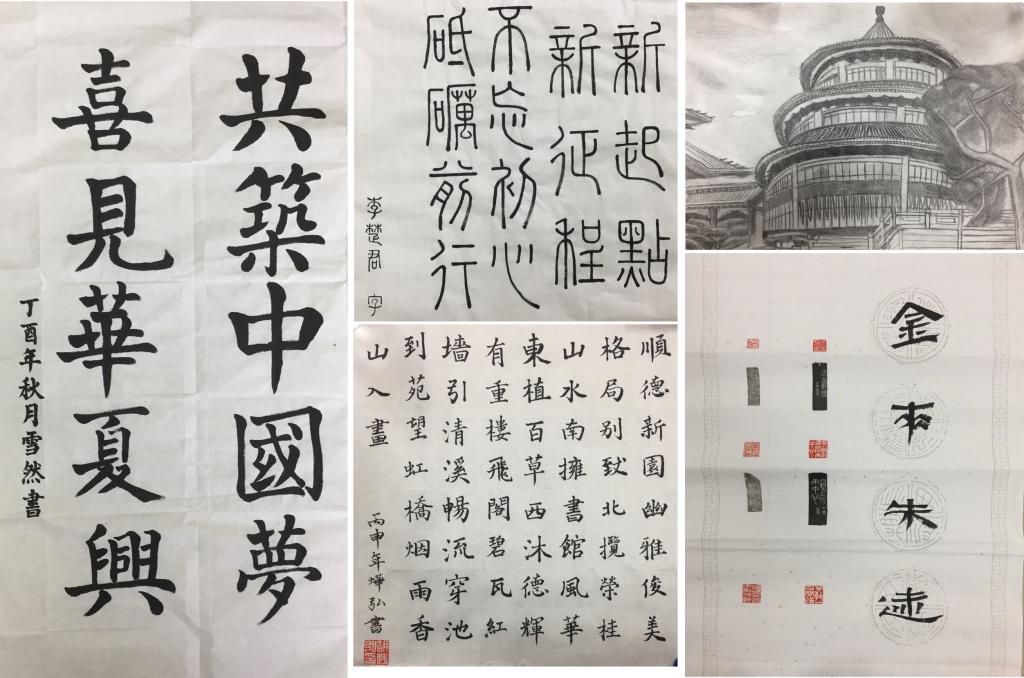 共築中國夢
喜見華夏興
丁酉年秋月雪然書
新起點
新征程
不忘初心
砥礪前行
李楚君 字
順德新園幽雅俊美
格局別致北攬榮桂
山水南擁書館風華
東植百草西沐德輝
有重樓飛閣碧瓦紅
墻引清溪暢流穿池
到苑望虹橋烟雨香
山入畫
丙申年燁弘書
金 朱迹